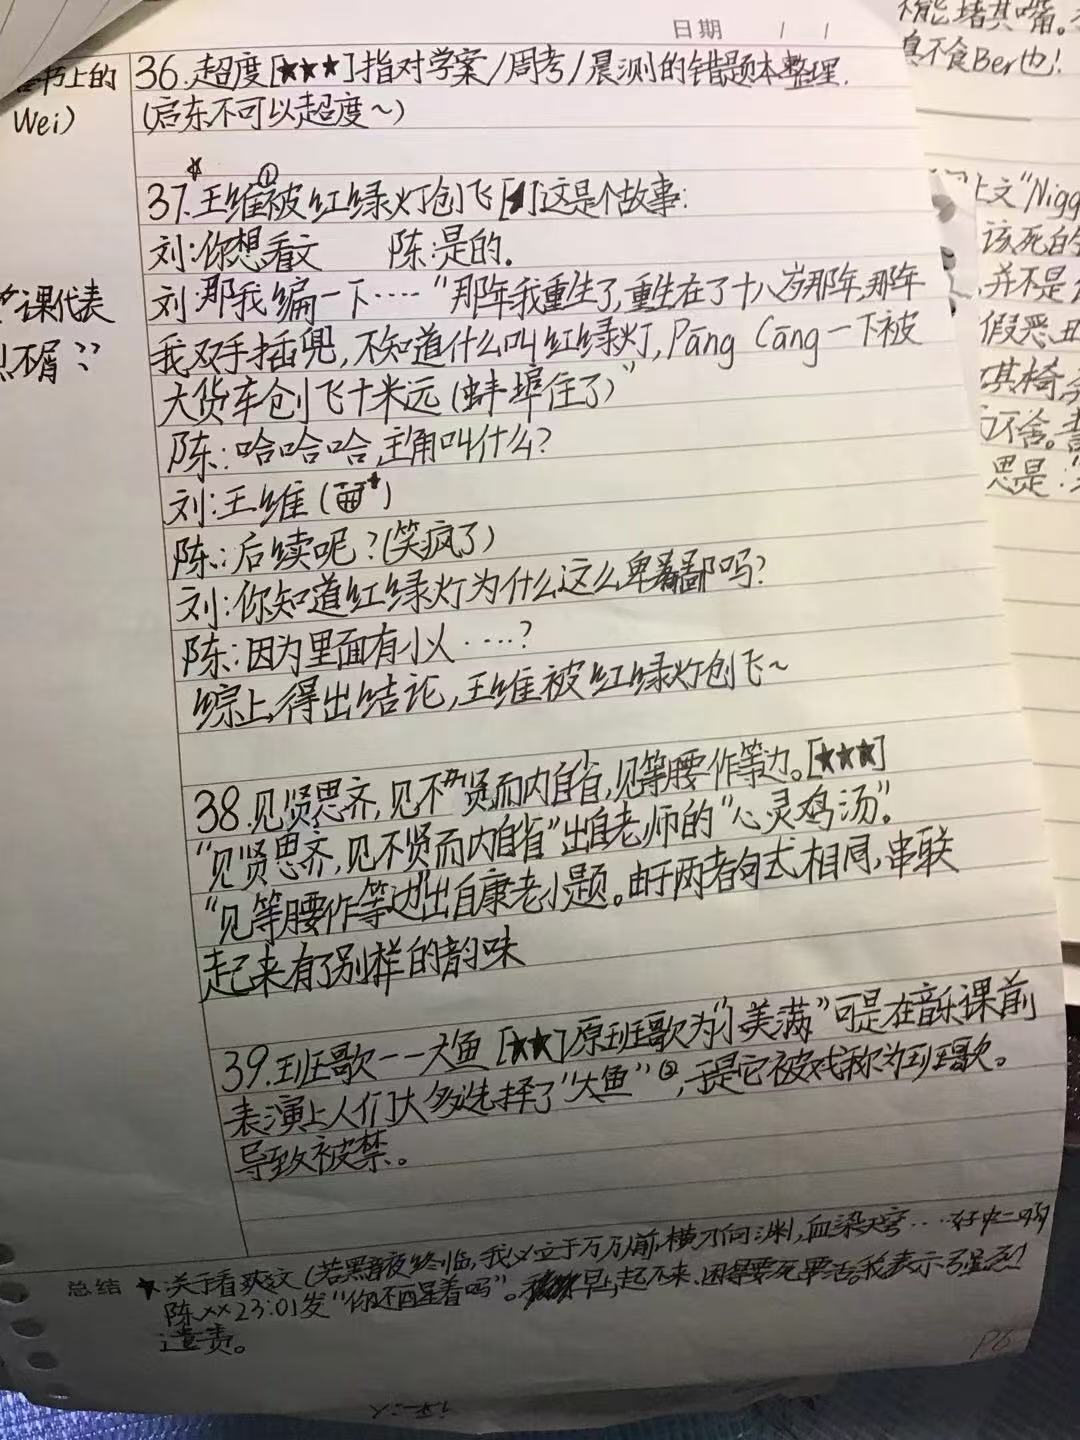 日期 / /
书上的
Wei）
36.超度[★★★]指对学案/周考/晨测的错题本整理.
(启东不可以超度~)
37.王维①被红绿灯创飞[★]这是个故事:
刘:你想看文 陈:是的.
刘:那我编一下……“那年我重生了,重生在了十八岁那年,那年
我双手插兜,不知道什么叫红绿灯,Pāng Cāng一下被
大货车创飞十米远(蚌埠住了)”
陈:哈哈哈,主角叫什么?
刘:王维(

陈:后续呢?(笑疯了)
刘:你知道红绿灯为什么这么卑鄙吗?
陈:因为里面有小人……?
综上,得出结论,王维被红绿灯创飞~
38.见贤思齐,见不贤而内自省,见等腰作等边。[★★★]
“见贤思齐,见不贤而内自省”出自老师的“心灵鸡汤”。
“见等腰作等边”出自康老小题。由于两者句式相同,串联
起来有了别样的韵味
39.班歌——大鱼 [★★]原班歌为“小美满”可是在音乐课前
表演上人们大多选择了“大鱼”②,于是它被戏称为班歌。
导致被禁。
课代表
不屑??
总结 ★:关于看爽文(若黑夜终临,我必立于万万人前,横刀向渊,血染天穹……好中二啊
陈××23:01发“你还醒着吗”。早上起不来,困得要死要活。我表示了强烈
谴责。
P6
不能堵其嘴。
真不食Ber也!
上文“Nigg
该死的
并不是
假恶丑
其椅
不舍。
思是: